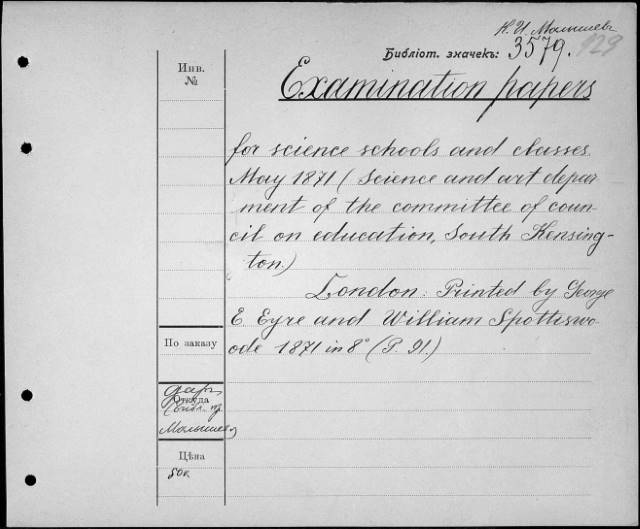 Н. И. Малышевъ
Библіот. значекъ: 3579. 129
Инв.
№
Examination papers
for science schools and classes.
May 1871 (Science and art depar
ment of the committee of coun-
cil on education, South Kensing-
ton.)
London: Printed by George
E. Eyre and William Spottiswo
ode 1871 in 8° (P. 91.)
По заказу
даръ
Откуда
Малышева
Цѣна
50к